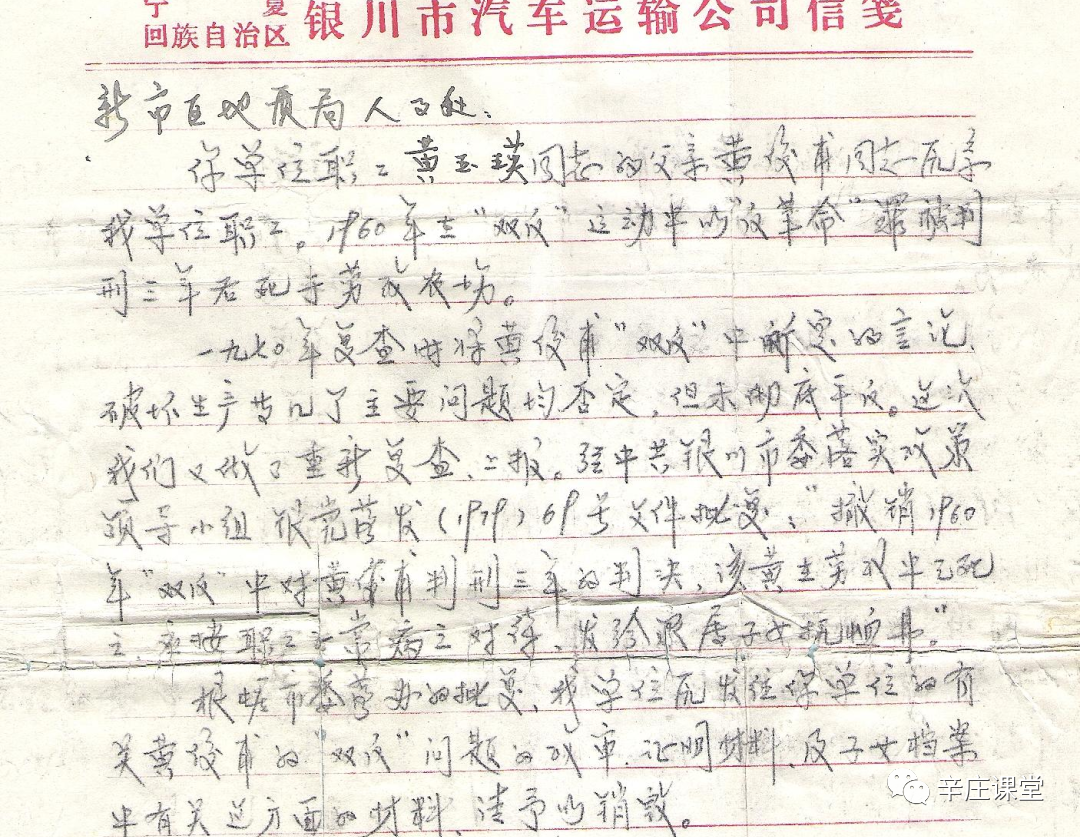 宁夏
回族自治区 银川市汽车运输公司信笺
新市区地质局人事处:
你单位职工黄玉瑛同志的父亲黄俊甫同志瓦系
我单位职工。1960年在"双反"运动中以"反革命"罪被判
刑三年后死于劳改农场。
一九七〇年复查时将黄俊甫"双反"中所定的言论、
破坏生产等几了主要问题均否定,但未彻底平反。这次
我们又做了重新复查、上报。经中共银川市委落实政策
领导小组银党落发(1979)69号文件批复:"撤销1960
年"双反"中对黄俊甫判刑三年的判决,该黄在劳改中已死
亡,应按职工正常病亡对待、发给家居子女抚恤费。"
根据市委落办的批复,我单位瓦发往你单位的有
关黄俊甫的"双反"问题的政审、证明材料,及子女档案
中有关这方面的材料,请予以销毁。
辛庄课堂